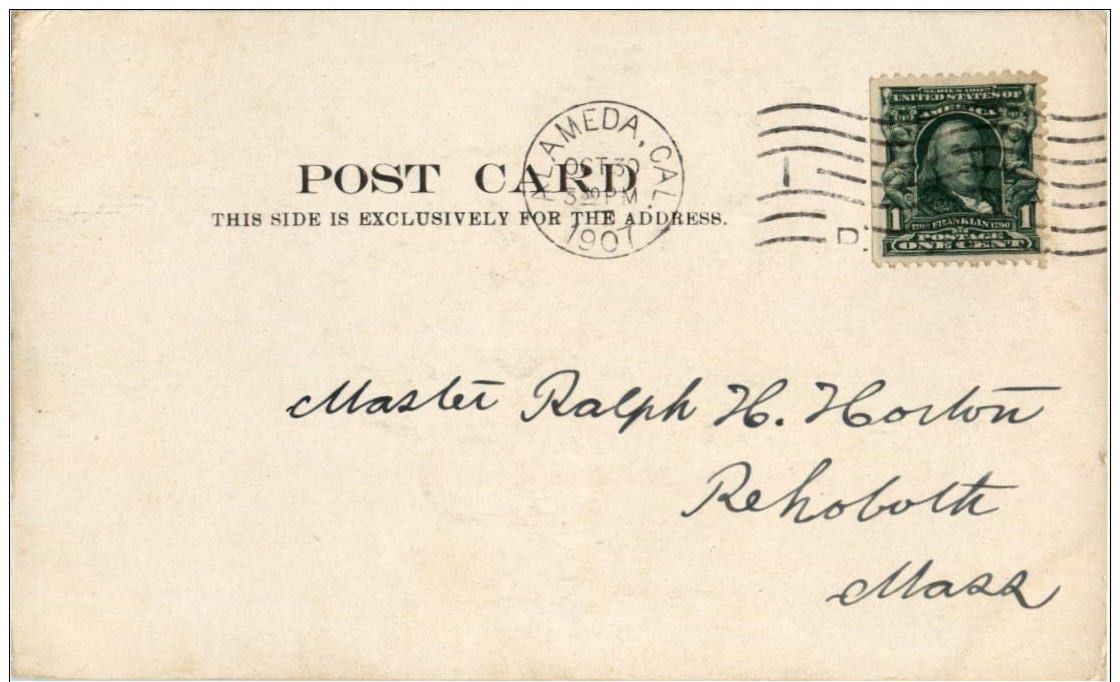 SERIES 1902
UNITED STATES OF
AMERICA
ALAMEDA, CAL.
OCT 30
3 30 PM
1907
POST CARD
THIS SIDE IS EXCLUSIVELY FOR THE ADDRESS.
1 FRANKLIN 1790 1
POSTAGE
ONE CENT
D.
Master Ralph H. Horton
Rehoboth
Mass